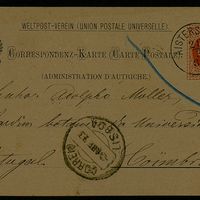 WELTPOST-VEREIN (UNION POSTALE UNIVERSELLE).
CORRESPONDENZ-KARTE (CARTE POSTALE)
(ADMINISTRATION D'AUTRICHE)
Adolpho Muller
Jardim botanico da Universi
Portugal. Coimbra
CORREIO
LISBOA